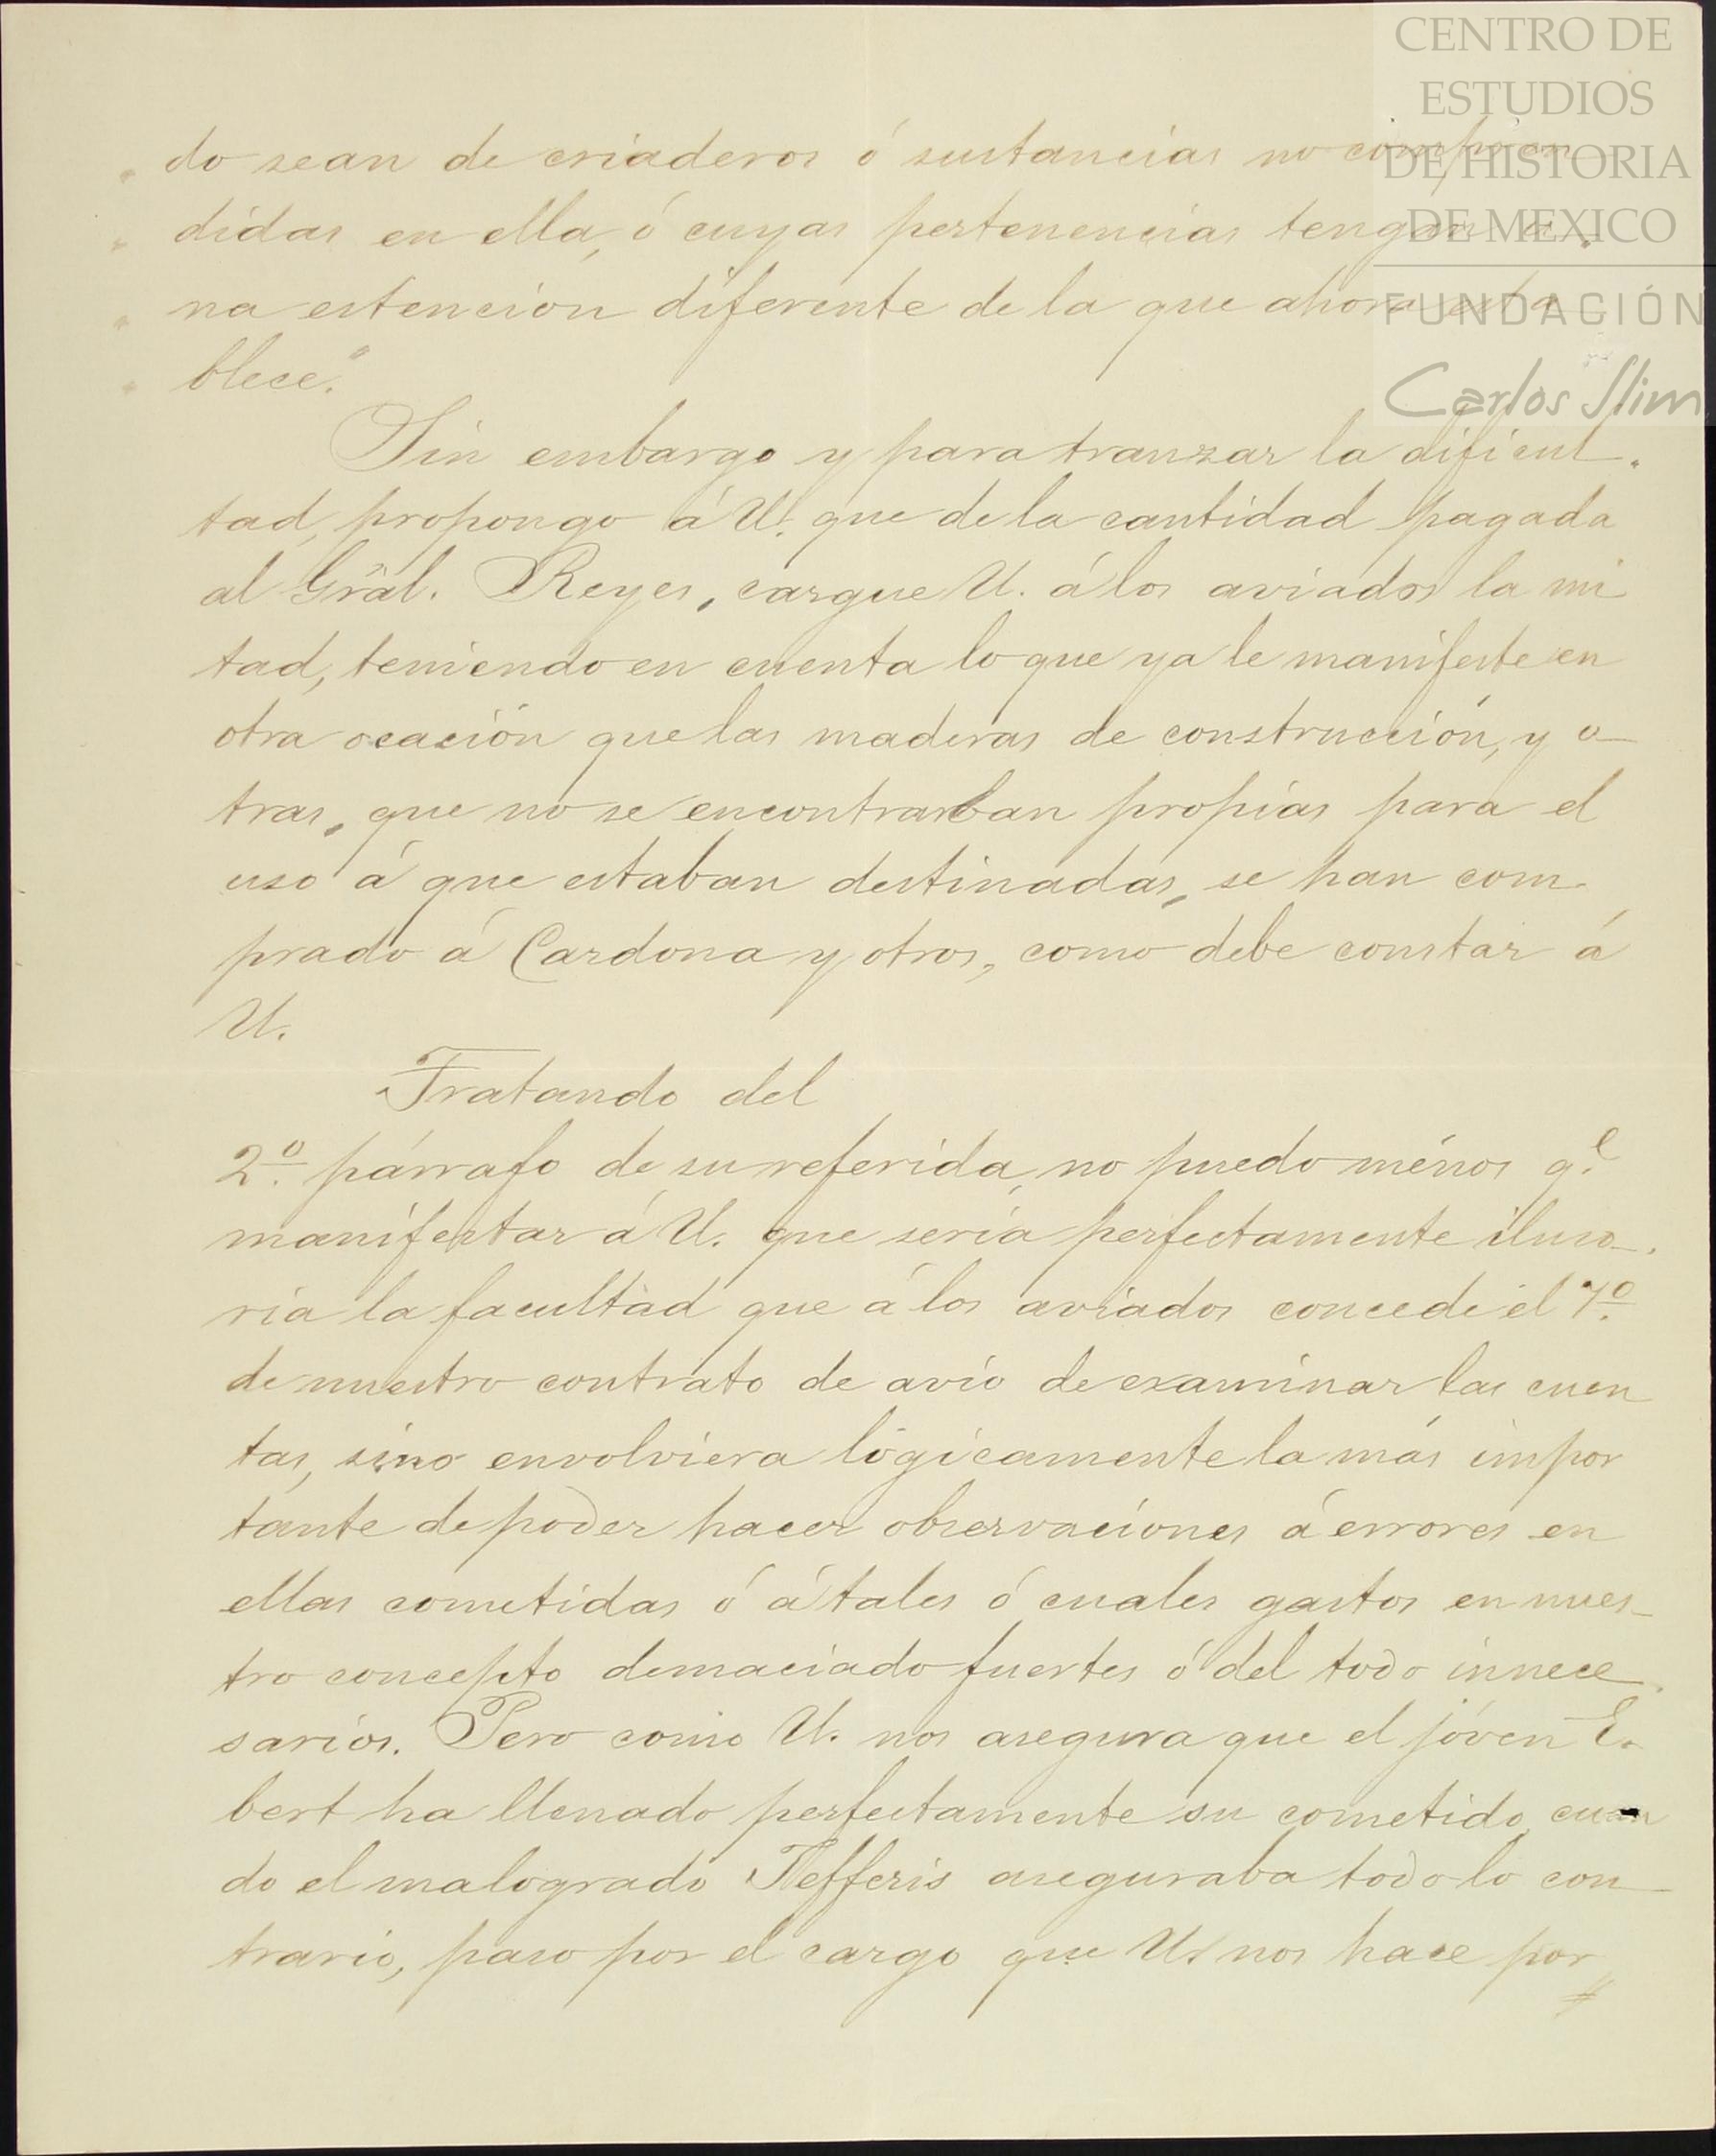 CENTRO DE
ESTUDIOS
DE HISTORIA
DE MEXICO
FUNDACIÓN
Carlos Slim
" do sean de criaderos ó sustancias no compren
" didas en ella, ó cuyas pertenencias tengan u-
" na estencion diferente de la que ahora esta
" blece."
Sin embargo y para tranzar la dificul-
tad, propongo á U. que de la cantidad pagada
al Gral. Reyes, cargue U. á los aviados la mi
tad, teniendo en cuenta lo que ya le manifesté en
otra ocación que las maderas de construcción, y o-
tras, que no se encontraban propias para el
uso á que estaban destinadas, se han com-
prado á Cardona y otros, como debe constar á
U.
Tratando del
2º párrafo de su referida, no puedo ménos q.e
manifestar á U. que sería perfectamente iluso-
ria la facultad que á los aviados concede el 7º
de nuestro contrato de avío de examinar las cuen
tas, sino envolviera lógicamente la más impor
tante de poder hacer observaciones á errores en
ellas cometidas ó á tales ó cuales gastos en nues-
tro concepto demaciado fuertes ó del todo innece-
sarios. Pero como U. nos asegura que el jóven E-
bert ha llenado perfectamente su cometido, cuan
do el malogrado Jefferis aseguraba todo lo con-
trario, paso por el cargo que U. nos hace por